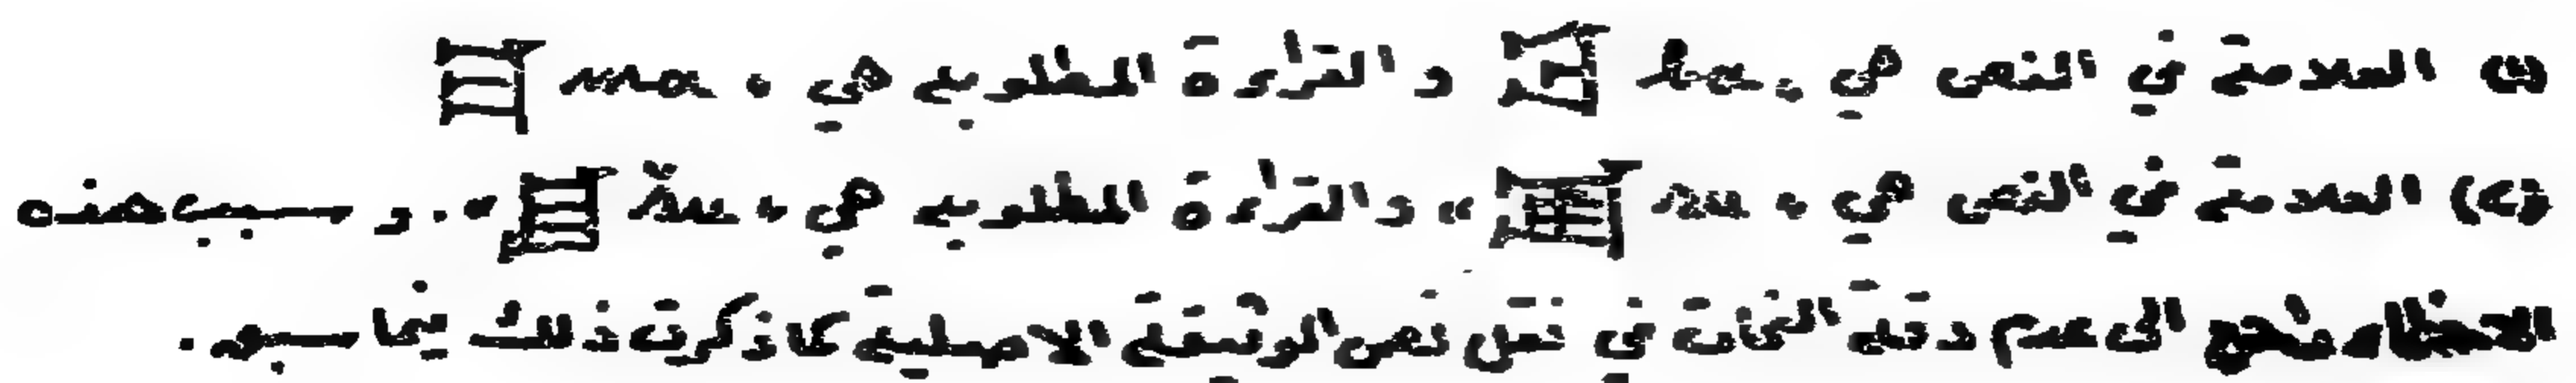 العلامة في النص هي « والقراءة المطلوبة هي «
(٢) العلامة في النص هي « » والقراءة المطلوبة هي « ». وسبب هذه
الاخطاء راجع الى عدم دقة النحات في نقل نص الوثيقة الاصلية كما ذكرت ذلك فيما سبق.